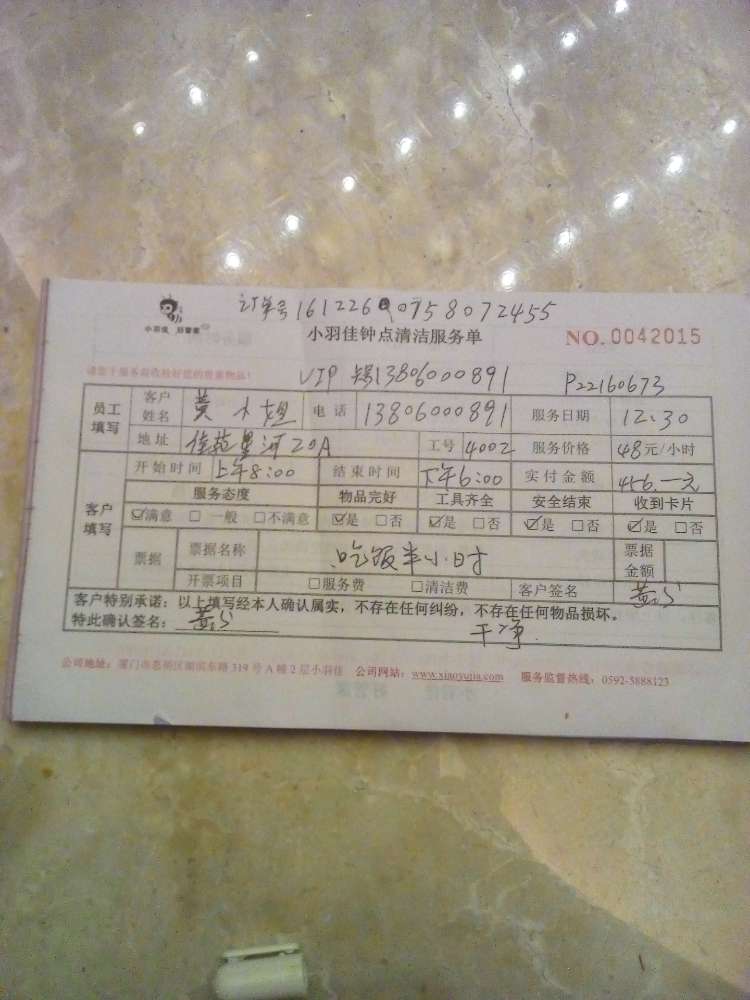 订单号 1612260758072455
小羽佳 好管家
小羽佳钟点清洁服务单 NO. 0042015
请您于服务前收拾好您的贵重物品!
VIP 13806000891 P22160673
员工填写 客户姓名 黄小姐 电话 13806000891 服务日期 12.30
地址 佳苑星河20A 工号 4002 服务价格 48元/小时
客户填写 开始时间 上午8:00 结束时间 下午6:00 实付金额 456.一元
服务态度 物品完好 工具齐全 安全结束 收到卡片
☑满意 □一般 □不满意 ☑是 □否 ☑是 □否 ☑是 □否 ☑是 □否
票据 票据名称 吃饭半小时 票据金额
开票项目 □服务费 □清洁费 客户签名 黄
客户特别承诺:以上填写经本人确认属实,不存在任何纠纷,不存在任何物品损坏。
特此确认签名: 黄 干净.
公司地址:厦门市思明区湖滨东路319号A幢2层小羽佳 公司网站:www.xiaoyujia.com 服务监督热线:0592-5888123